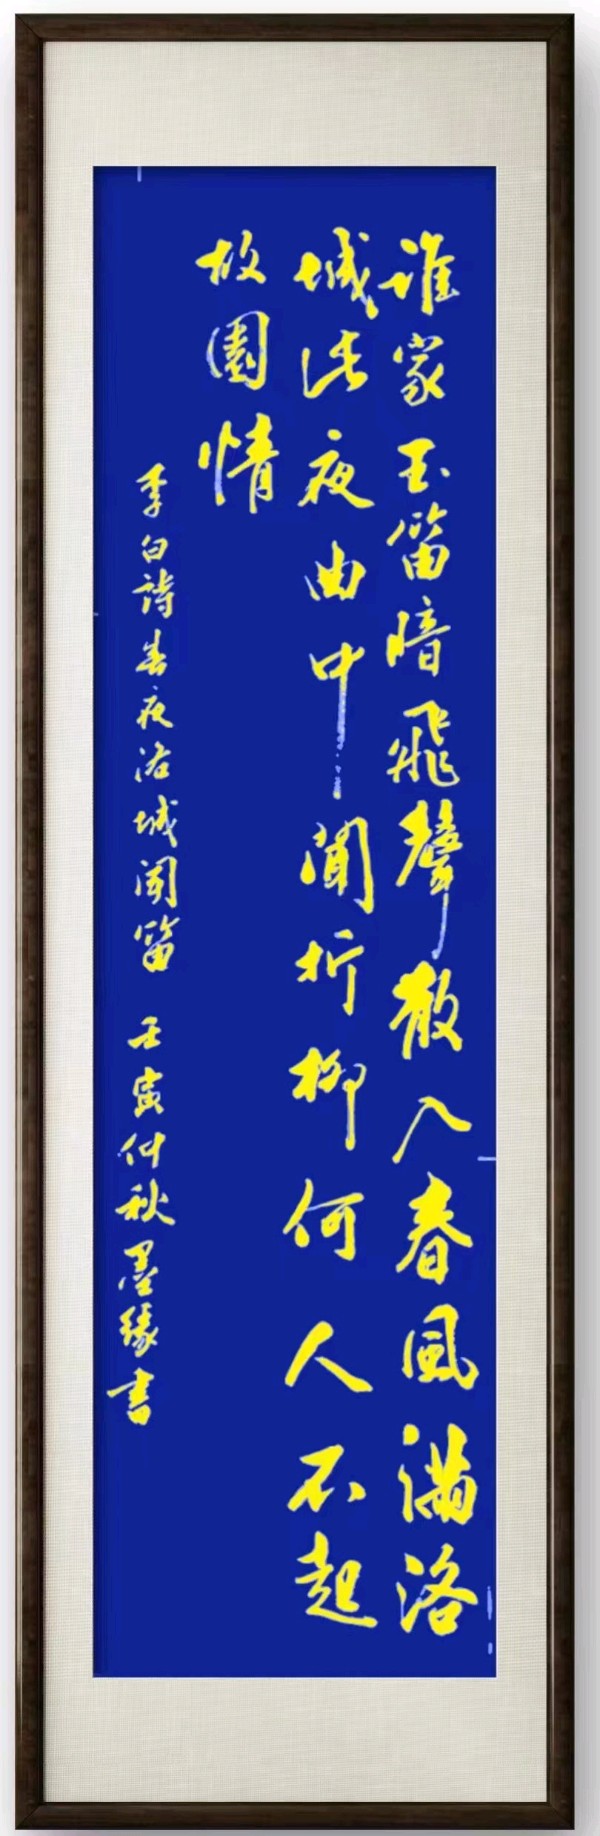 誰家玉笛暗飛聲散入春風滿洛
城此夜曲中聞折柳何人不起
故園情
李白詩春夜洛城闻笛 壬寅仲秋墨缘書